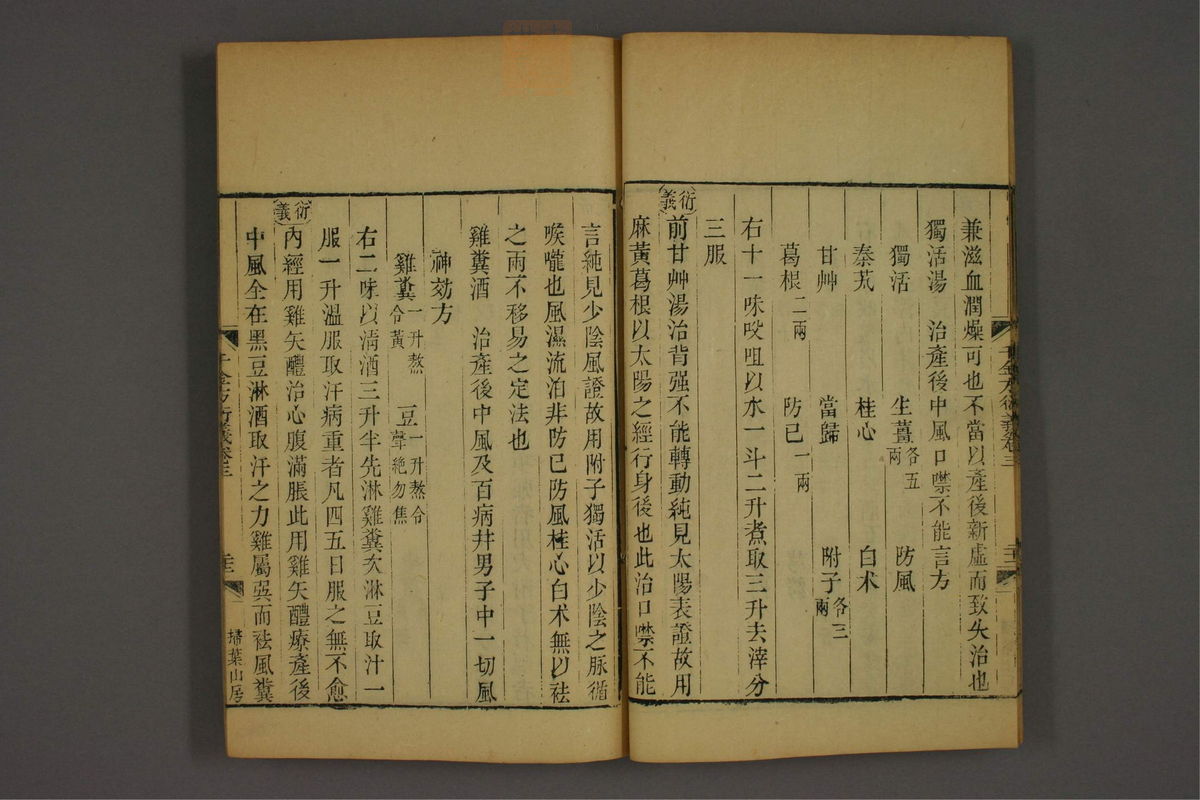 兼滋血潤燥可也不當以產後新虛而致失治也
獨活湯　治產後中風口噤不能言方
獨活　生薑各五兩　防風
秦艽　桂心　白术
甘艸　當歸　附子各三兩
葛根二兩　防己一兩
右十一味㕮咀以水一斗二升煮取三升去滓分
三服
衍義
前甘艸湯治背强不能轉動純見太陽表證故用
麻黃葛根以太陽之經行身後也此治口噤不能
言純見少陰風證故用附子獨活以少陰之脉循
喉嚨也風濕流泊非防己防風桂心白术無以祛
之兩不移易之定法也
雞糞酒　治產後中風及百病幷男子中一切風
神効方
雞糞一升熬令黃　豆一升熬令聲絕勿焦
右二味以淸酒三升半先淋雞糞次淋豆取汁一
服一升溫服取汗病重者凡四五日服之無不愈
衍義
內經用雞矢醴治心腹滿脹此用雞矢醴療產後
中風全在黑豆淋酒取汗之力雞屬巽而祛風糞
千金方衍義卷三
掃葉山房